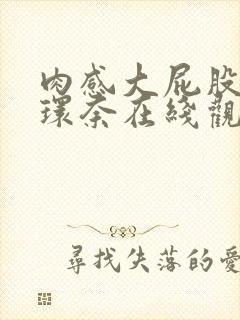 肉感大屁股
環奈在綫觀
尋找失落的愛